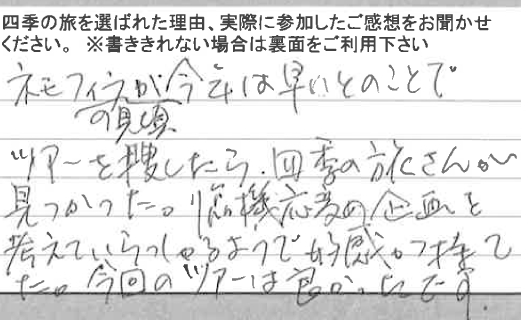 四季の旅を選ばれた理由、実際に参加したご感想をお聞かせ
ください。 ※書ききれない場合は裏面をご利用下さい
ネモフィラが今年は早いとのことで
の見頃
ツアーを捜したら、四季の旅さんが
見つかった。臨機応変の企画を
考えていらっしゃるようで好感が持て
た。今回のツアーは良かったです。